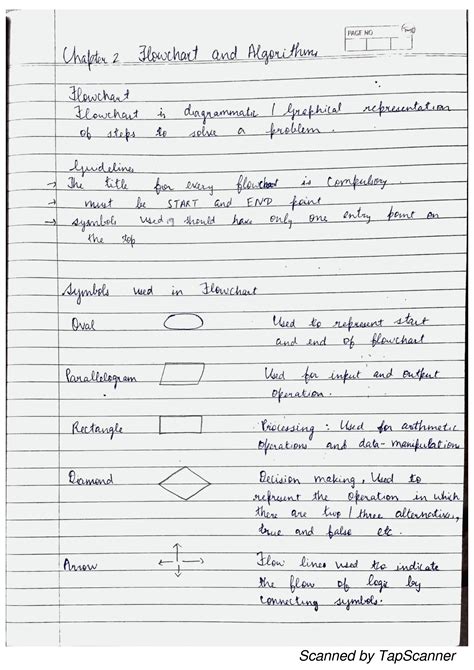 PAGE NO
Chapter 2 Flowchart and Algorithms
Flowchart
Flowchart is diagrammatic / Graphical representation
of steps to solve a problem.
Guideline
→ The title for every flowchart is Compulsory.
→ must be START and END point
→ symbols used is should have only one entry point on
the top
Symbols used in Flowchart
Oval Used to represent start
and end of flowchart
Parallelogram Used for input and output
operation.
Rectangle Processing : Used for arthmetic
operations and data-manipulation
Diamond Decision making, Used to
represent the operation in which
there are two / three alternatives,
true and false etc.
Arrow Flow lines used to indicate
the flow of logic by
connecting symbols.
Scanned by TapScanner